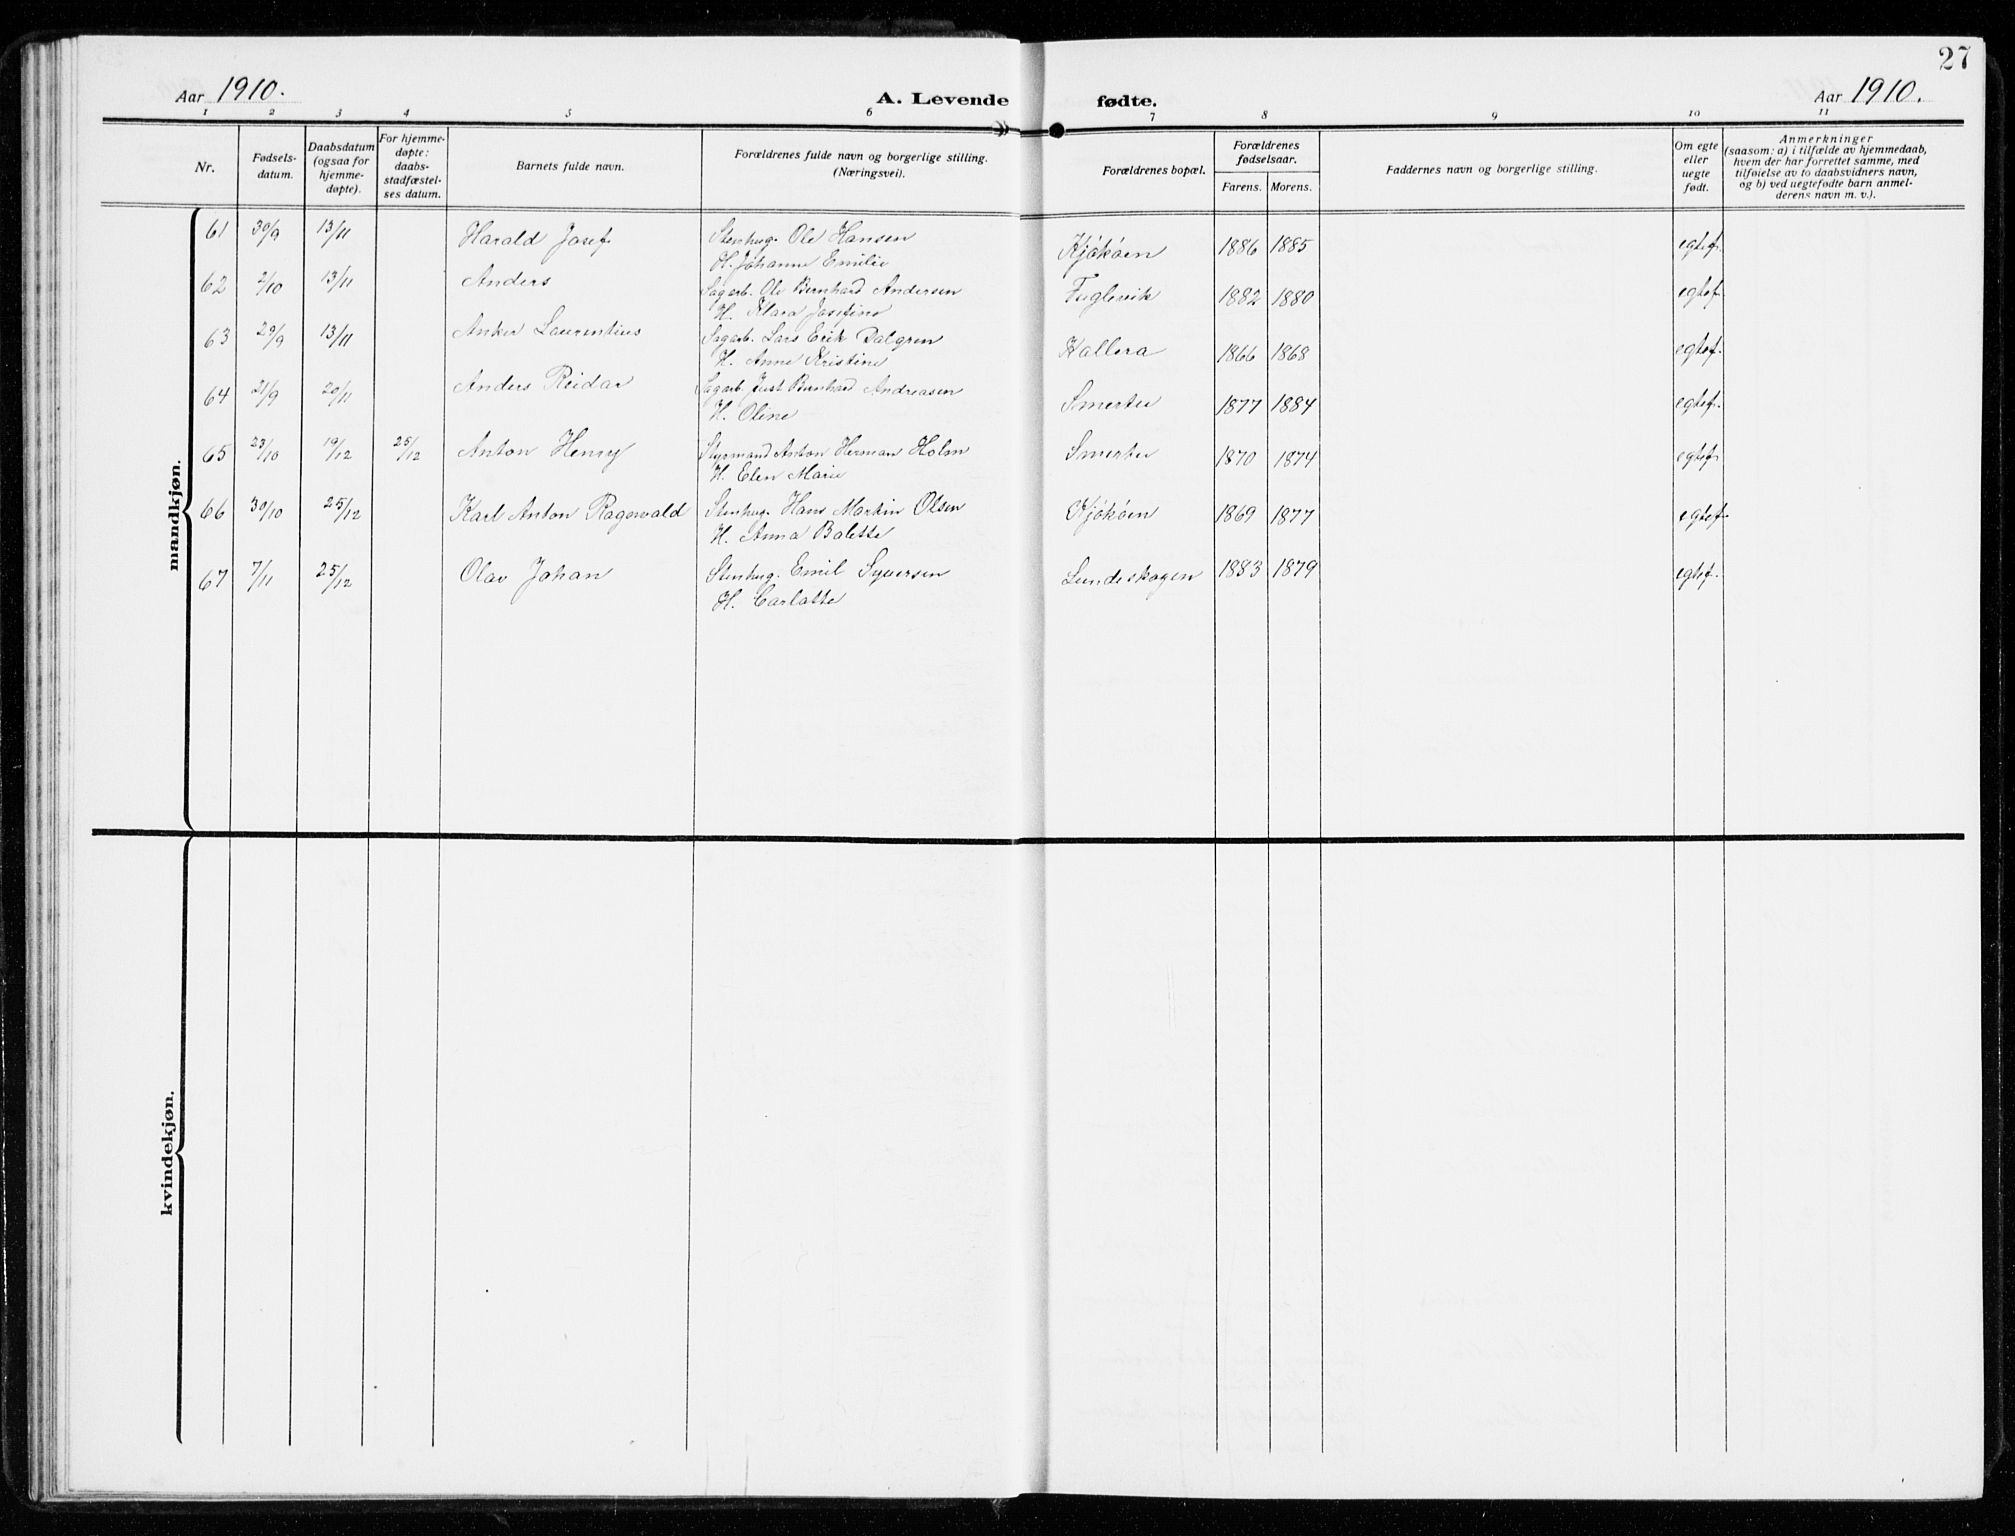 27
Aar 1910. A. Levende fødte. Aar 1910.
1 2 3 4 5 6 7 8 9 10 11
Nr.
Fødsels-
datum.
Daabsdatum
(ogsaa for
hjemme-
døpte).
For hjemme-
døpte:
daabs-
stadfæstel-
ses datum.
Barnets fulde navn.
Forældrenes fulde navn og borgerlige stilling.
(Næringsvei).
Forældrenes bopæl.
Forældrenes
fødselsaar.
Farens. Morens.
Faddernes navn og borgerlige stilling.
Om egte
eller
uegte
født.
Anmerkninger
(saasom: a) i tilfælde av hjemmedaab,
hvem der har forrettet samme, med
tilføielse av to daabsvidners navn,
og b) ved uegtefødte barn anmel-
derens navn m. v.).
mandkjøn.
61 30/9 13/11 Harald Josef Stenhug. Ole Hansen Kjøkøen 1886 1885 egtef.
H. Johanne Emilie
62 2/10 13/11 Anders Sagarb. Ole Bernhard Andersen Fuglevik 1882 1880 egtef.
H. Klara Josefine
63 29/9 13/11 Anker Laurentius Sagarb. Lars Erik Dalgren Kallera 1866 1868 egtef.
H. Anne Kristine
64 21/9 20/11 Anders Reidar Sagarb. Just Bernhard Andreasen Smertu 1877 1884 egtef.
H. Oline
65 23/10 19/12 25/12 Anton Henry Styrmand Anton Herman Holm Smertu 1870 1874 egtef.
H. Elen Marie
66 30/10 25/12 Karl Anton Ragnvald Stenhug. Hans Martin Olsen Kjøkøen 1869 1877 egtef.
H. Anna Balette
67 7/11 25/12 Olav Johan Stenhug. Emil Syversen Lundeskogen 1883 1879 egtef.
H. Carlotte
kvindekjøn.